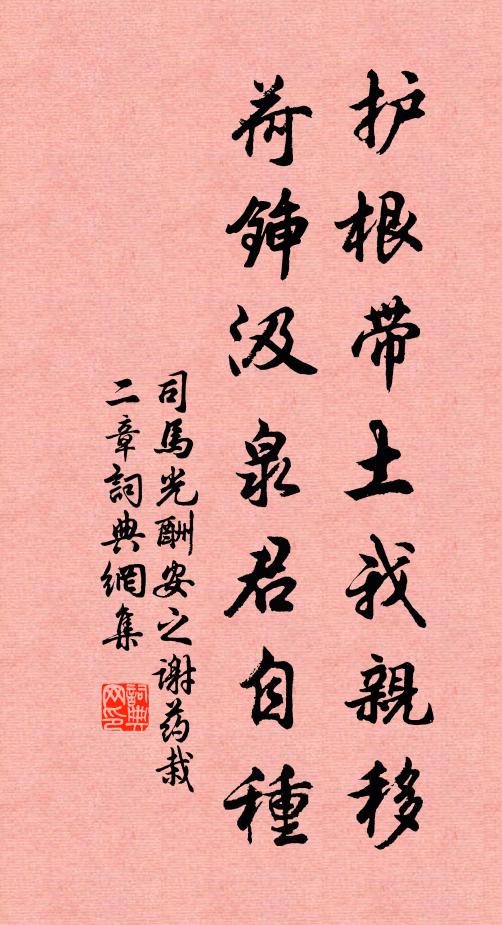 护根带土我親移
荷鍤汲泉君自種
司馬光酬安之谢药栽
二章詞典網集
詞典
网印